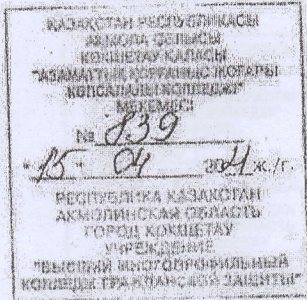 ҚАЗАҚСТАН РЕСПУБЛИКАСЫ
АҚМОЛА ОБЛЫСЫ
КӨКШЕТАУ ҚАЛАСЫ
"АЗАМАТТЫҚ ҚОРҒАНЫС ЖОҒАРЫ
КӨПСАЛАЛЫ КОЛЛЕДЖІ"
МЕКЕМЕСІ
№ 839
"15" 04 2024 ж./г.
РЕСПУБЛИКА КАЗАХСТАН
АКМОЛИНСКАЯ ОБЛАСТЬ
ГОРОД КОКШЕТАУ
УЧРЕЖДЕНИЕ
"ВЫСШИЙ МНОГОПРОФИЛЬНЫЙ
КОЛЛЕДЖ ГРАЖДАНСКОЙ ЗАЩИТЫ"